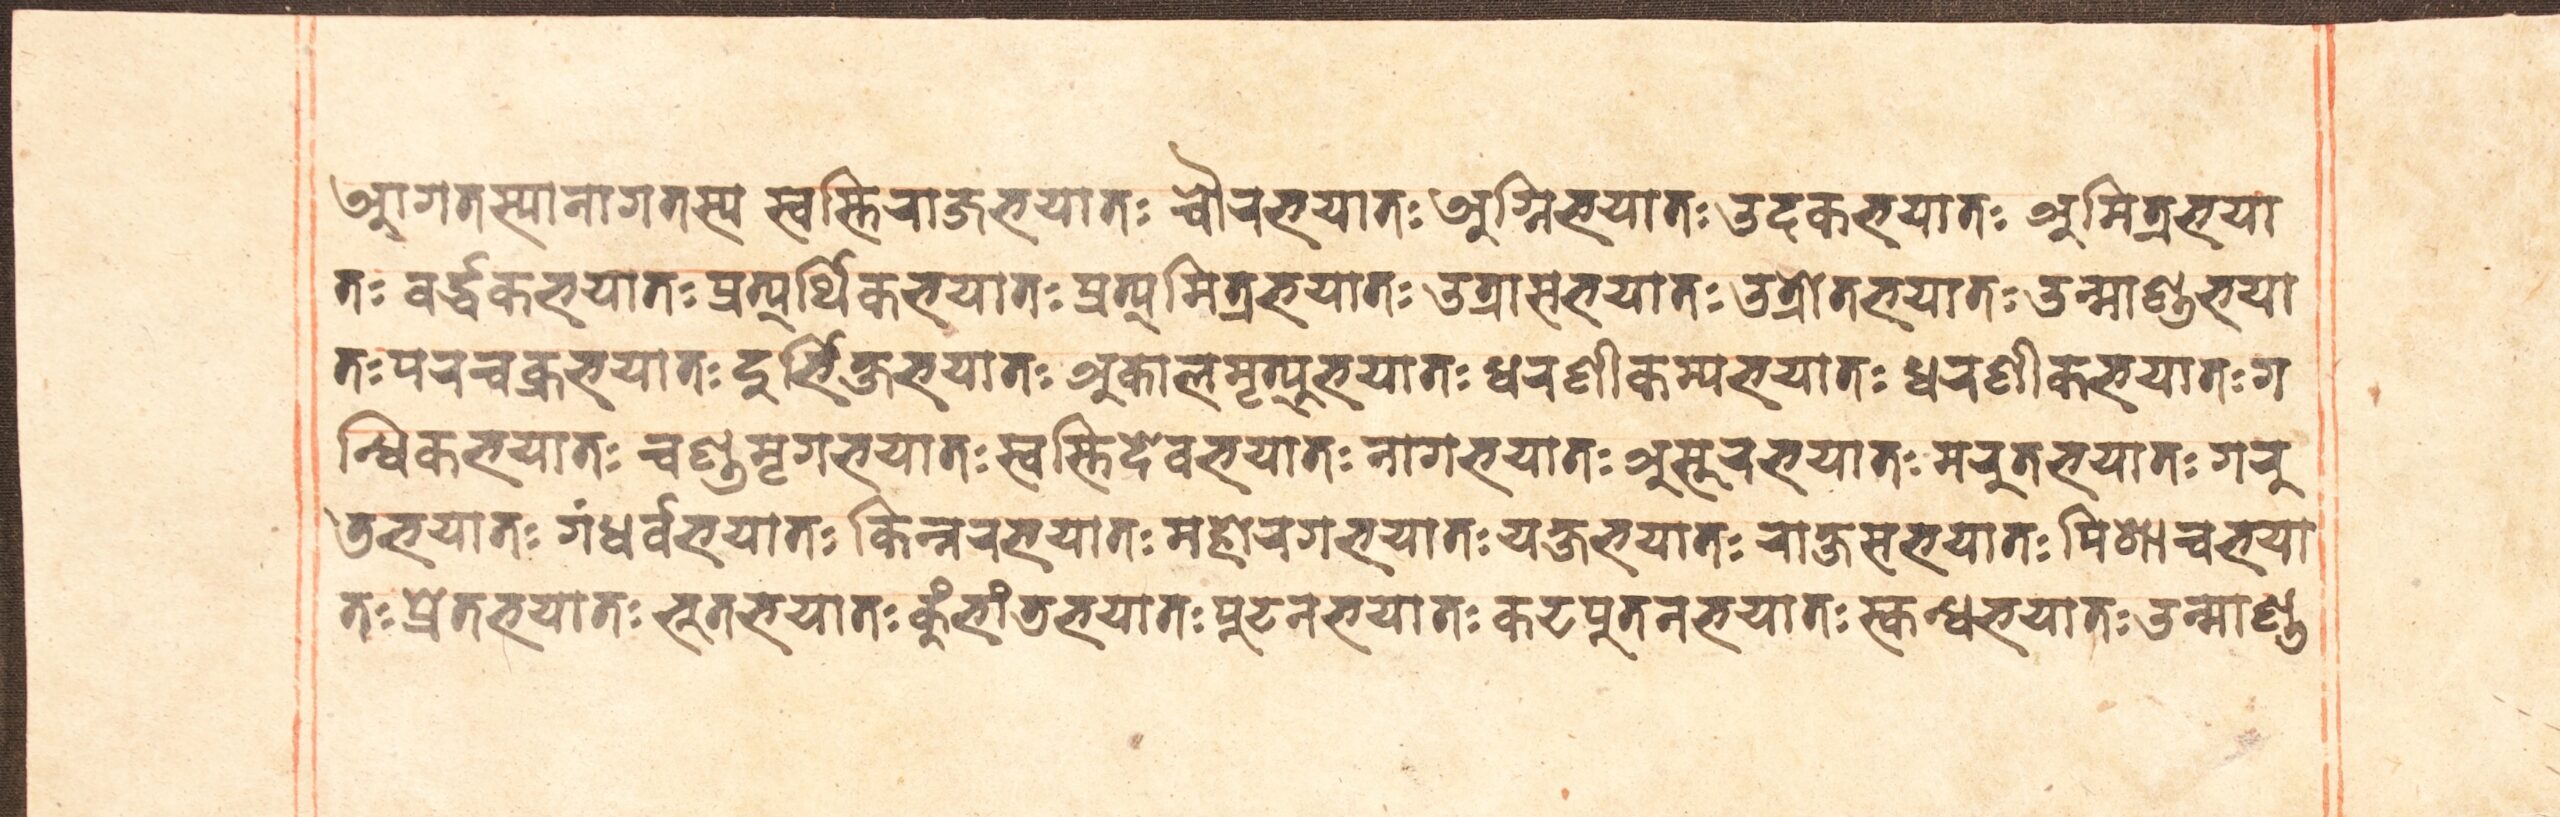 आगतस्यानागतस्य स्वस्तिराजभयातः चौरभयातः अग्निभयातः उदकभयातः अमित्रभया
तः वर्द्धकभयातः प्रत्यर्थिकभयातः प्रत्यमित्रभयातः उत्रासभयातः उत्रोतभयातः उन्माण्डभया
तः परचक्रभयातः दुर्भिक्षभयातः अकालमृत्युभयातः धरणीकम्पभयातः धरणीकभयातः ग
न्धिकभयातः चण्डमृगभयातः स्वस्तिदेवभयातः नागभयातः असुरभयातः मरुतभयातः गरु
डभयातः गंधर्वभयातः किन्नरभयातः महोरगभयातः यक्षभयातः राक्षसभयातः पिशाचभया
तः प्रेतभयातः भुतभयातः कुंभांडभयातः पुटनभयातः कटपुतनभयातः स्कन्धभयातः उन्माण्ड